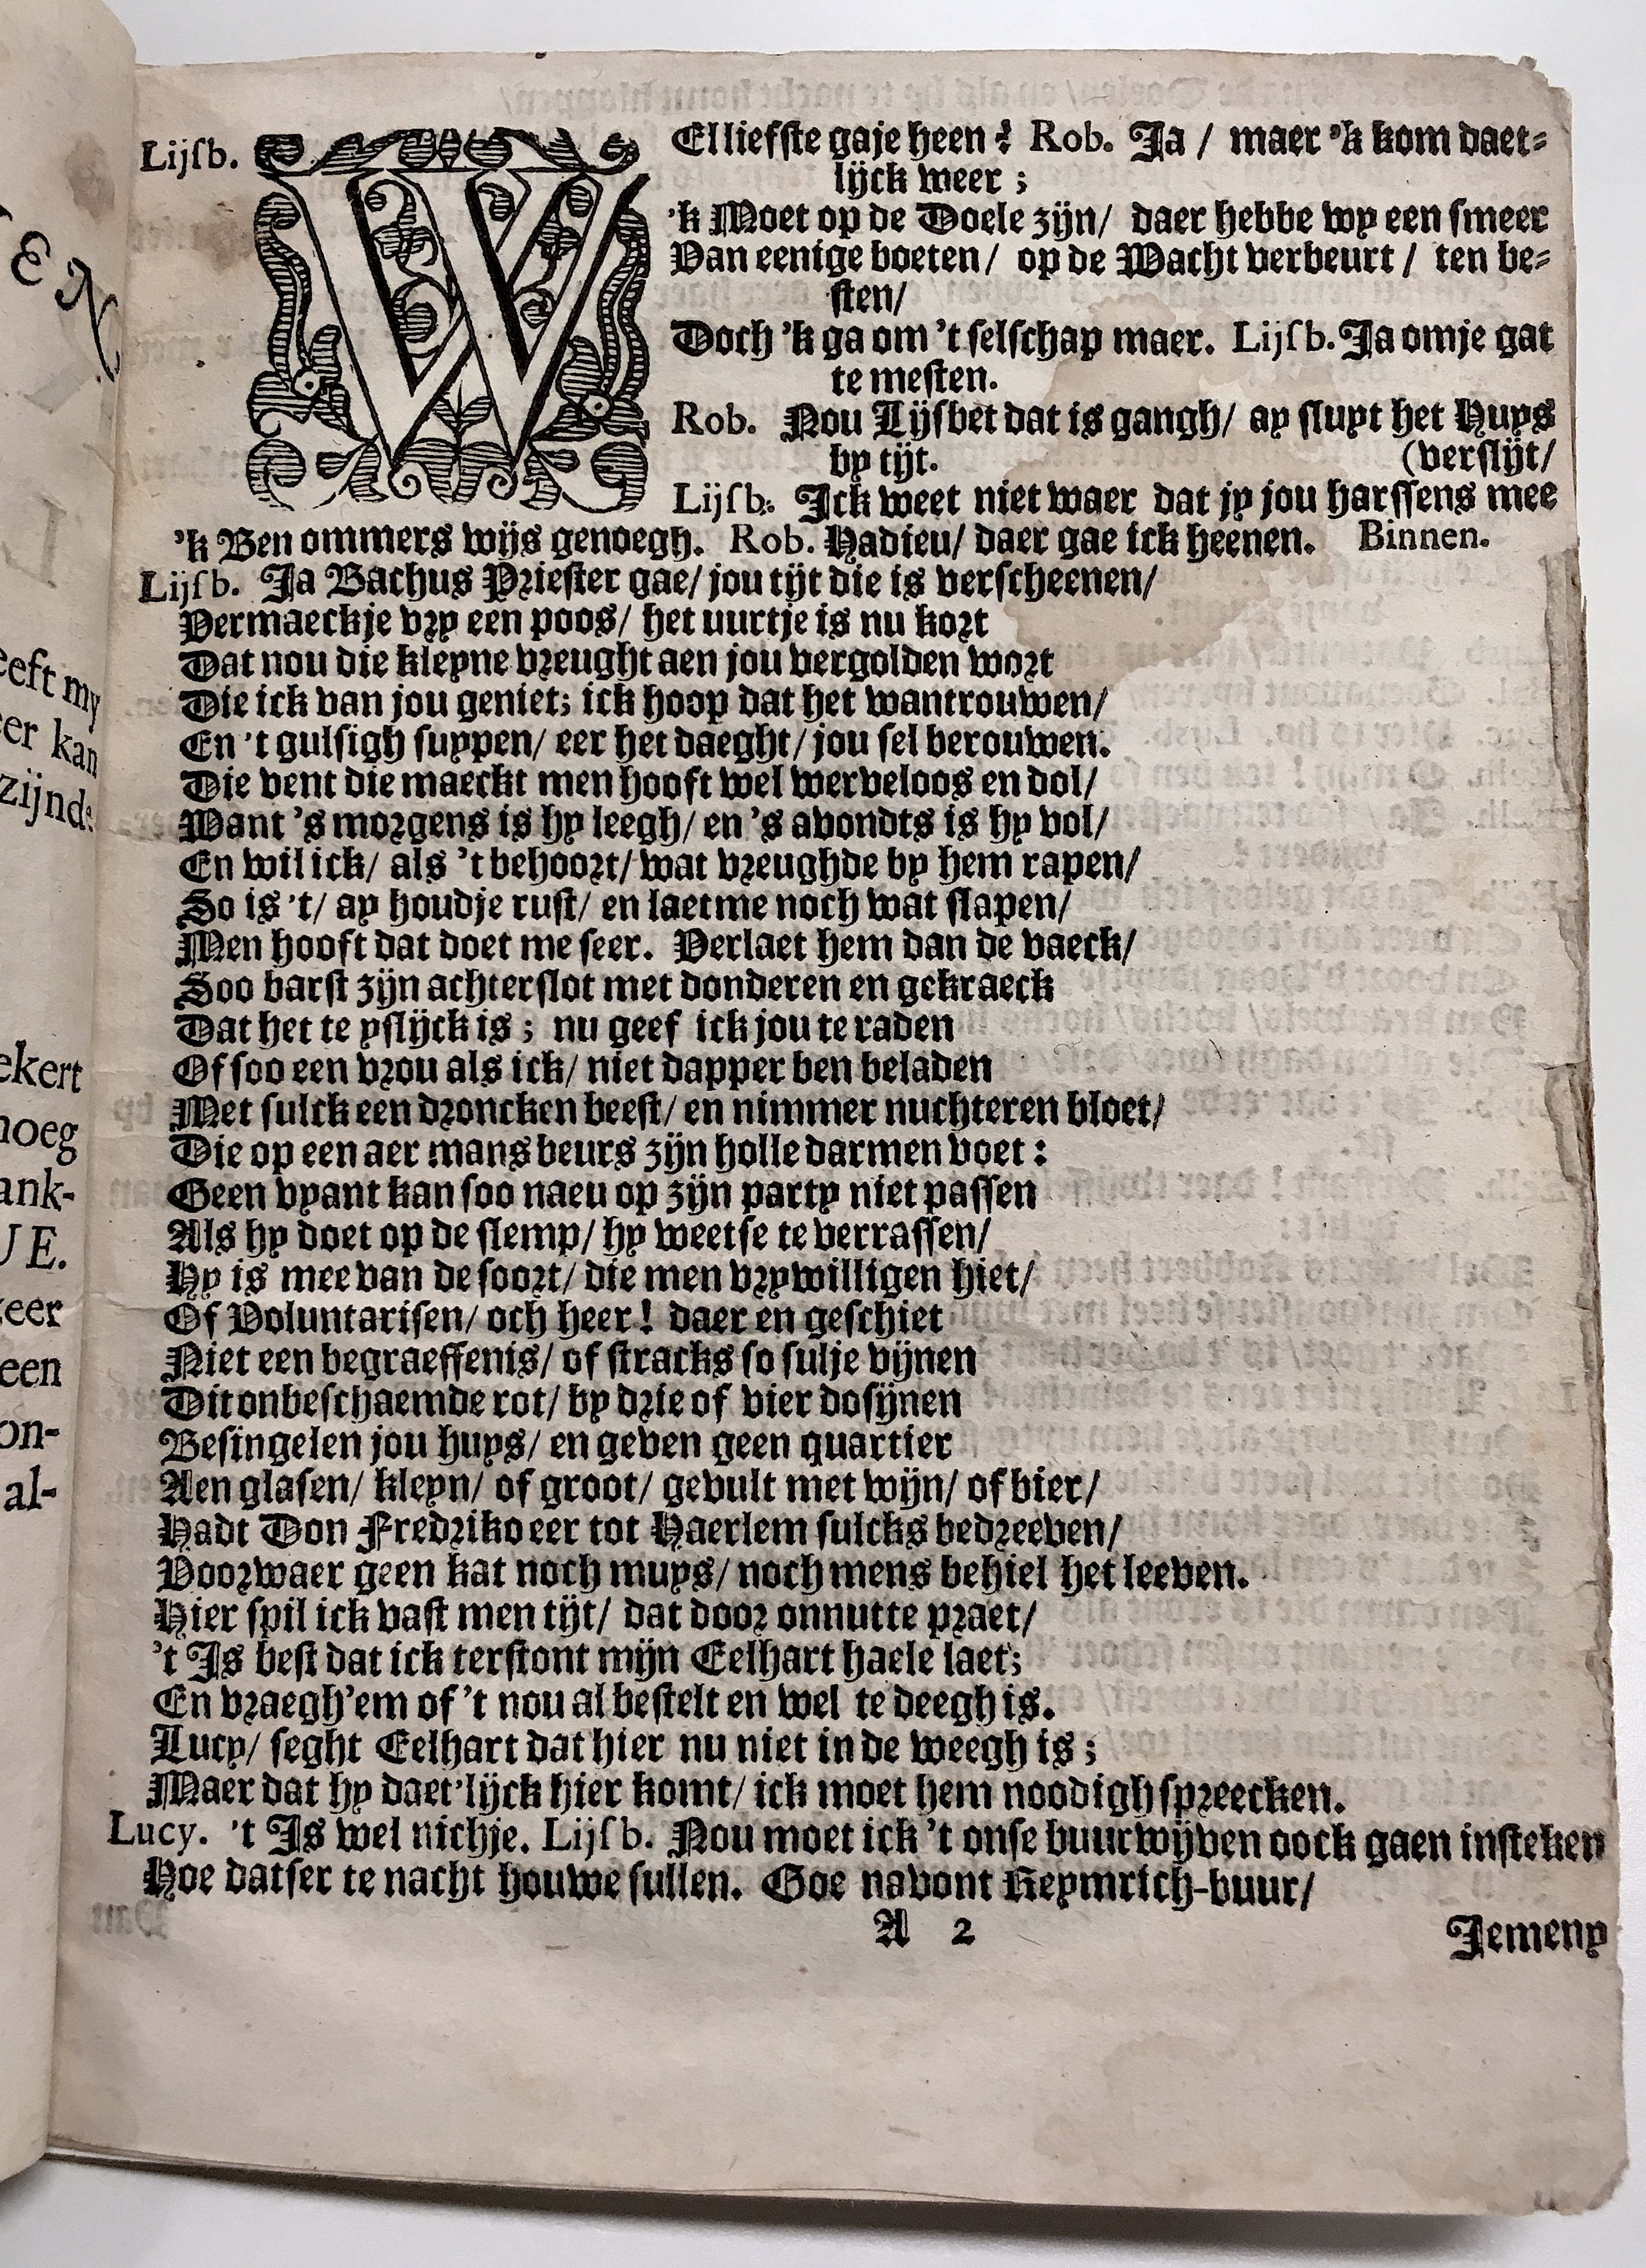 Lijſb. WEl liefſte gaje heen? Rob. Ja / maer 'k kom daet-
lijck weer ;
'k Moet op de Doele zijn / daer hebbe wy een ſmeer
Van eenige boeten / op de Wacht verbeurt / ten be-
ſten /
Doch 'k ga om 't ſelſchap maer. Lijſb. Ja omje gat
te meſten.
Rob. Nou Lijſbet dat is gangh / ay ſluyt het Huys
by tijt. (verſlijt /
Lijſb. Ick weet niet waer dat jy jou harſſens mee
'k Ben ommers wijs genoegh. Rob. Hadieu / daer gae ick heenen. Binnen.
Lijſb. Ja Bachus Prieſter gae / jou tijt die is verſcheenen /
Vermaeckje vry een poos / het uurtje is nu kort
Dat nou die kleyne vreught aen jou vergolden wort
Die ick van jou geniet; ick hoop dat het wantrouwen /
En 't gulſigh ſuypen / eer het daeght / jou ſel berouwen.
Die vent die maeckt men hooft wel werveloos en dol /
Want 's morgens is hy leegh / en 's avondts is hy vol /
En wil ick / als 't behoort / wat vreughde by hem rapen /
So is 't / ay houdje ruſt / en laetme noch wat ſlapen /
Men hooft dat doet me ſeer. Verlaet hem dan de vaeck /
Soo barſt zijn achterſlot met donderen en gekraeck
Dat het te yſlijck is ; nu geef ick jou te raden
Of ſoo een vrou als ick / niet dapper ben beladen
Met ſulck een droncken beeſt / en nimmer nuchteren bloet /
Die op een aer mans beurs zijn holle darmen voet :
Geen vyant kan ſoo naeu op zijn party niet paſſen
Als hy doet op de ſlemp / hy weetſe te verraſſen /
Hy is mee van de ſoort / die men vrywilligen hiet /
Of Voluntariſen / och heer ! daer en geſchiet
Niet een begraeffenis / of ſtracks ſo ſulje vijnen
Dit onbeſchaemde rot / by drie of vier doſijnen
Beſingelen jou huys / en geven geen quartier
Aen glaſen / kleyn / of groot / gevult met wijn / of bier /
Hadt Don Fredriko eer tot Haerlem ſulcks bedreeven /
Voorwaer geen kat noch muys / noch mens behiel het leeven.
Hier ſpil ick vaſt men tijt / dat door onnutte praet /
't Is beſt dat ick terſtont mijn Eelhart haele laet;
En vraegh'em of 't nou al beſtelt en wel te deegh is.
Lucy / ſeght Eelhart dat hier nu niet in de weegh is ;
Maer dat hy daet'lijck hier komt / ick moet hem noodigh ſpreecken.
Lucy. 't Is wel nichje. Lijſb. Nou moet ick 't onſe buurwijven oock gaen inſteken
Hoe datſer te nacht houwe ſullen. Goe navont Reymrich-buur /
A 2
Jemeny
TEN
eeft my
er kan
zijnde
ekert
noeg
ank-
UE.
eer
een
on-
al-